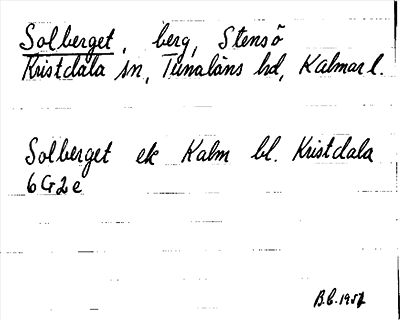 Solberget, berg, Stensö
Kristdala sn, Tunaläns hd, Kalmar l.
Solberget ek Kalm bl. Kristdala
6G2e
B.L. 1957